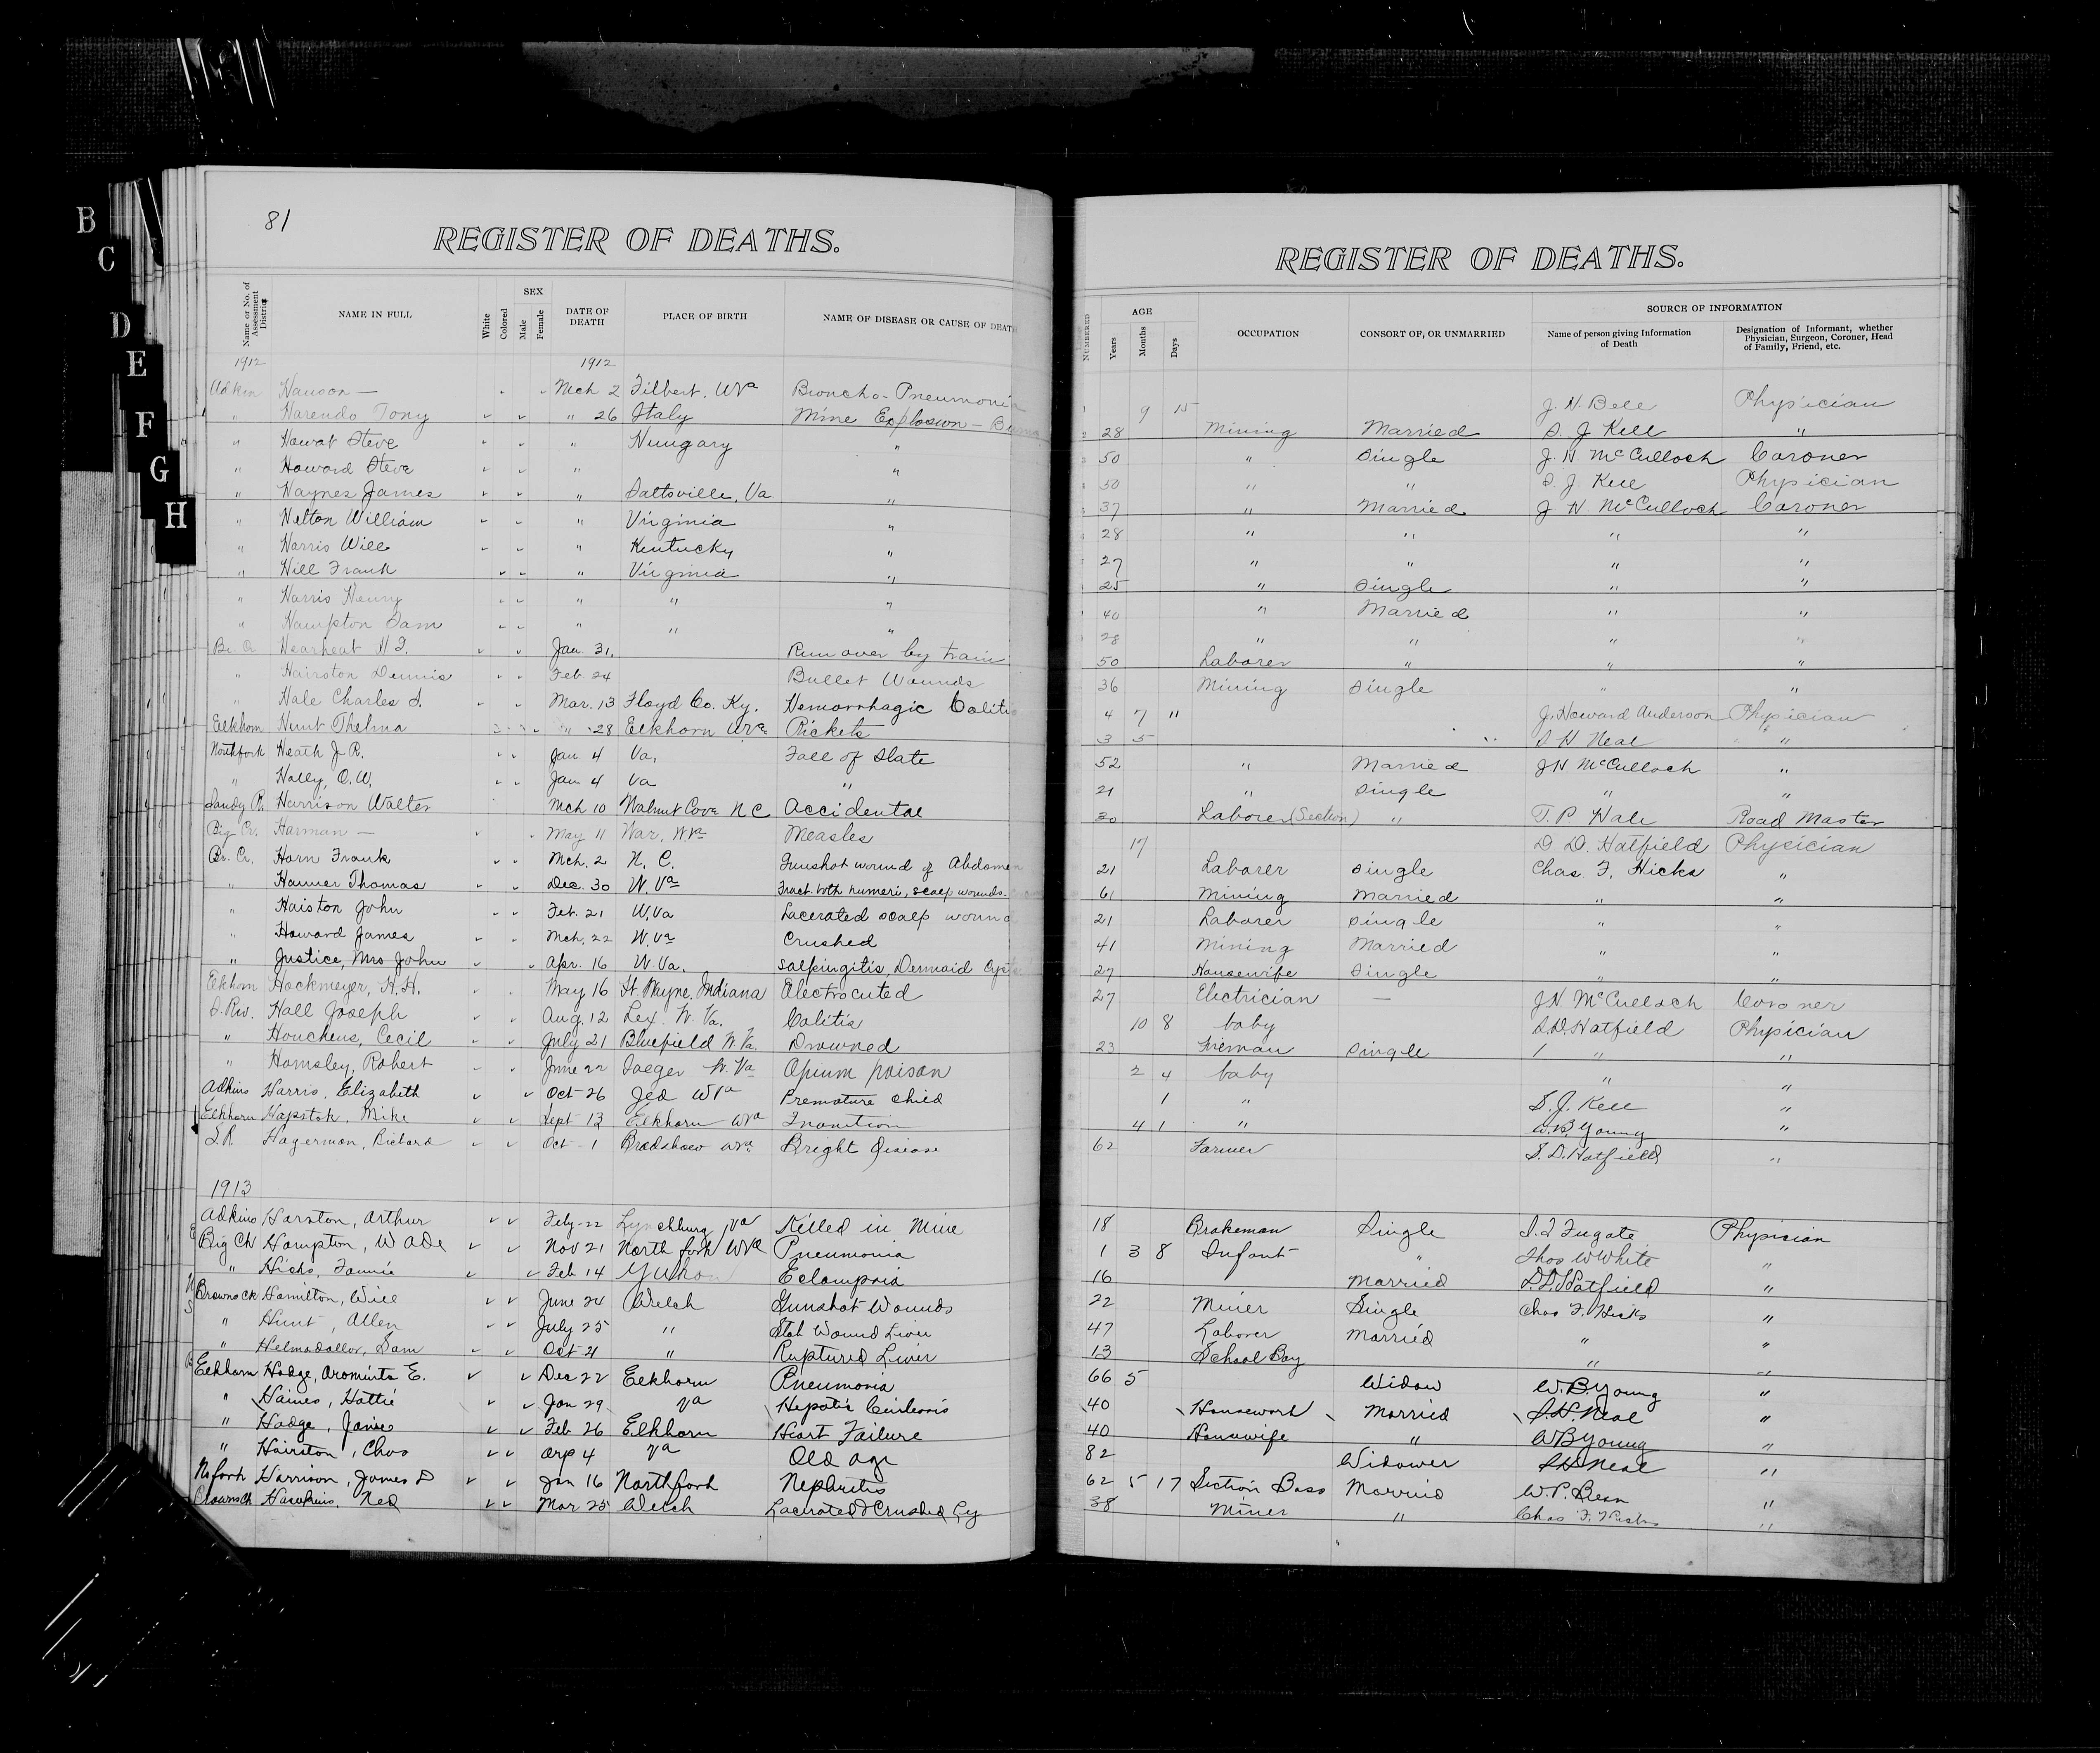 81
REGISTER OF DEATHS.
REGISTER OF DEATHS.
Name or No. of Assessment District
NAME IN FULL
White
Colored
SEX
Male
Female
DATE OF DEATH
PLACE OF BIRTH
NAME OF DISEASE OR CAUSE OF DEATH
NUMBERED
AGE
Years
Months
Days
OCCUPATION
CONSORT OF, OR UNMARRIED
SOURCE OF INFORMATION
Name of person giving Information of Death
Designation of Informant, whether Physician, Surgeon, Coroner, Head of Family, Friend, etc.
B
C
D
E
F
G
H
1912 1912
Adkin Hanson — Mch 2 Filbert, W Va Broncho-Pneumonia 9 15 J. H. Bell Physician
" Harendo Tony " 26 Italy Mine Explosion 28 Mining Married S. J. Kell "
" Howat Steve " Hungary " 50 " Single J. H McCulloch Coroner
" Howard Steve " " 50 " " S. J. Kell Physician
" Haynes James " Saltsville, Va " 37 " Married J H McCulloch Coroner
" Helton William " Virginia " 28 " " " "
" Harris Will " Kentucky " 27 " " " "
" Hill Frank " Virginia " 25 " Single " "
" Harris Henry " " " 40 " Married " "
" Hampton Sam " " " 28 " " " "
Br. Cr. Jan 31. Run over by train 50 Laborer " " "
" Hairston Dennis Feb. 24 Bullet Wounds 36 Mining Single " "
" Hale Charles S. Mar. 13 Floyd Co. Ky. Hemorrhagic Colitis 4 7 " J. Howard Anderson Physician
Elkhorn Hunt Thelma " 28 Elkhorn W Va Rickets 3 5 S H Neal "
Northfork Heath J. R. Jan 4 Va. Fall of Slate 52 " Married J H McCulloch "
" Holly, O. W. Jan 4 Va " 21 " Single " "
Sandy R. Harrison Walter Mch 10 Walnut Cove N C Accidental 30 Laborer (Section) " T. P Hale Road Master
Big Cr. Harman — May 11 War, W Va Measles 17 D. D. Hatfield Physician
Br. Cr. Horn Frank Mch. 2 N. C. Gunshot wound of Abdomen 21 Laborer Single Chas. F. Hicks "
" Hanner Thomas Dec. 30 W. Va Fract. both humeri, scalp wounds. 61 Mining Married " "
" Haiston John Feb. 21 W. Va Lacerated scalp wound 21 Laborer Single " "
" Howard James Mch. 22 W. Va Crushed 41 Mining Married " "
" Justice, Mrs John Apr. 16 W. Va. Salpingitis, Dermoid Cysts 27 Housewife Single " "
Elkhorn Hockmeyer, H. H. May 16 Ft. Wayne, Indiana Electrocuted 27 Electrician — J H. McCulloch Coroner
S. Riv. Hall Joseph Aug. 12 Lex. W. Va. Colitis 10 8 baby S. D. Hatfield Physician
" Houchens, Cecil July 21 Bluefield W Va. Drowned 23 Fireman Single " "
" Hamsley, Robert June 22 Iaeger W. Va Opium poison 2 4 baby " "
Adkins Harris, Elizabeth Oct 26 Jed W Va Premature Child 1 " S. J. Kell "
Elkhorn Hapstok, Mike Sept 13 Elkhorn W Va Inanition 4 1 " W. B. Young "
S. R. Hagerman, Richard Oct - 1 Bradshaw W Va Bright disease 62 Farmer S. D. Hatfield "
1913
Adkins Harston, Arthur Feby-22 Lynchburg, Va Killed in Mine 18 Brakeman Single Physician
Big Ck Hampton, Wade Nov 21 North fork W Va Pneumonia 1 3 8 Infant " Thos W White "
" Hicks, Fannie Feb 14 Yukon Eclampsia 16 Married D. D. Hatfield "
Browns ck Hamilton, Will June 24 Welch Gunshot Wounds 22 Miner Single Chas F. Hicks "
" Hunt, Allen July 25 " Stab Wound Liver 47 Laborer Married " "
" Sam Oct 21 " Ruptured Liver 13 School Boy " "
Elkhorn Hodge, Araminta E. Dec 22 Elkhorn Pneumonia 66 5 Widow W. B. Young "
" Haines, Hattie Jan 29 Va Hepatic Cirrhosis 40 Housework Married S. H. Neal "
" Hodge, Janie Feb 26 Elkhorn Heart Failure 40 Housewife " W B Young "
" Hairston, Chas Arp 4 Va Old age 82 Widower S H Neal "
No fork Harrison, James D Jan 16 Northfork Nephritis 62 5 17 Section Boss Married W. P. Bean "
Brownsck Hawkins, Ned Mar 25 Welch Lacerated & Crushed Leg 38 Miner " Chas F. Hicks "